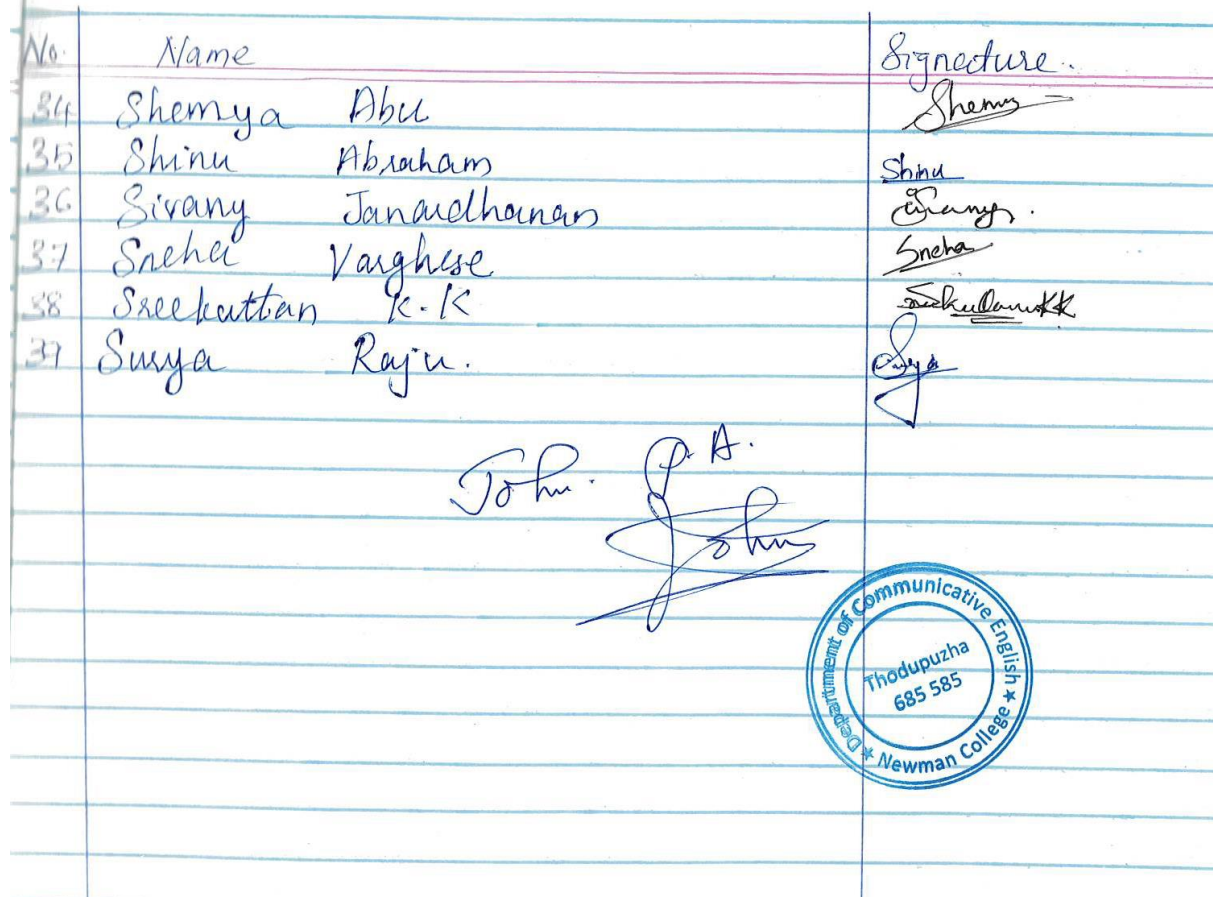 No. Name Signature.
34 Shemya Abu Shemy
35 Shinu Abraham Shinu
36 Sivany Janardhanan Sivany.
37 Sneha Varghese Sneha
38 Sreekuttan K.K
39 Surya Raju. Surya
John. P.A.
John
Department of Communicative English
Thodupuzha
685 585
Newman College